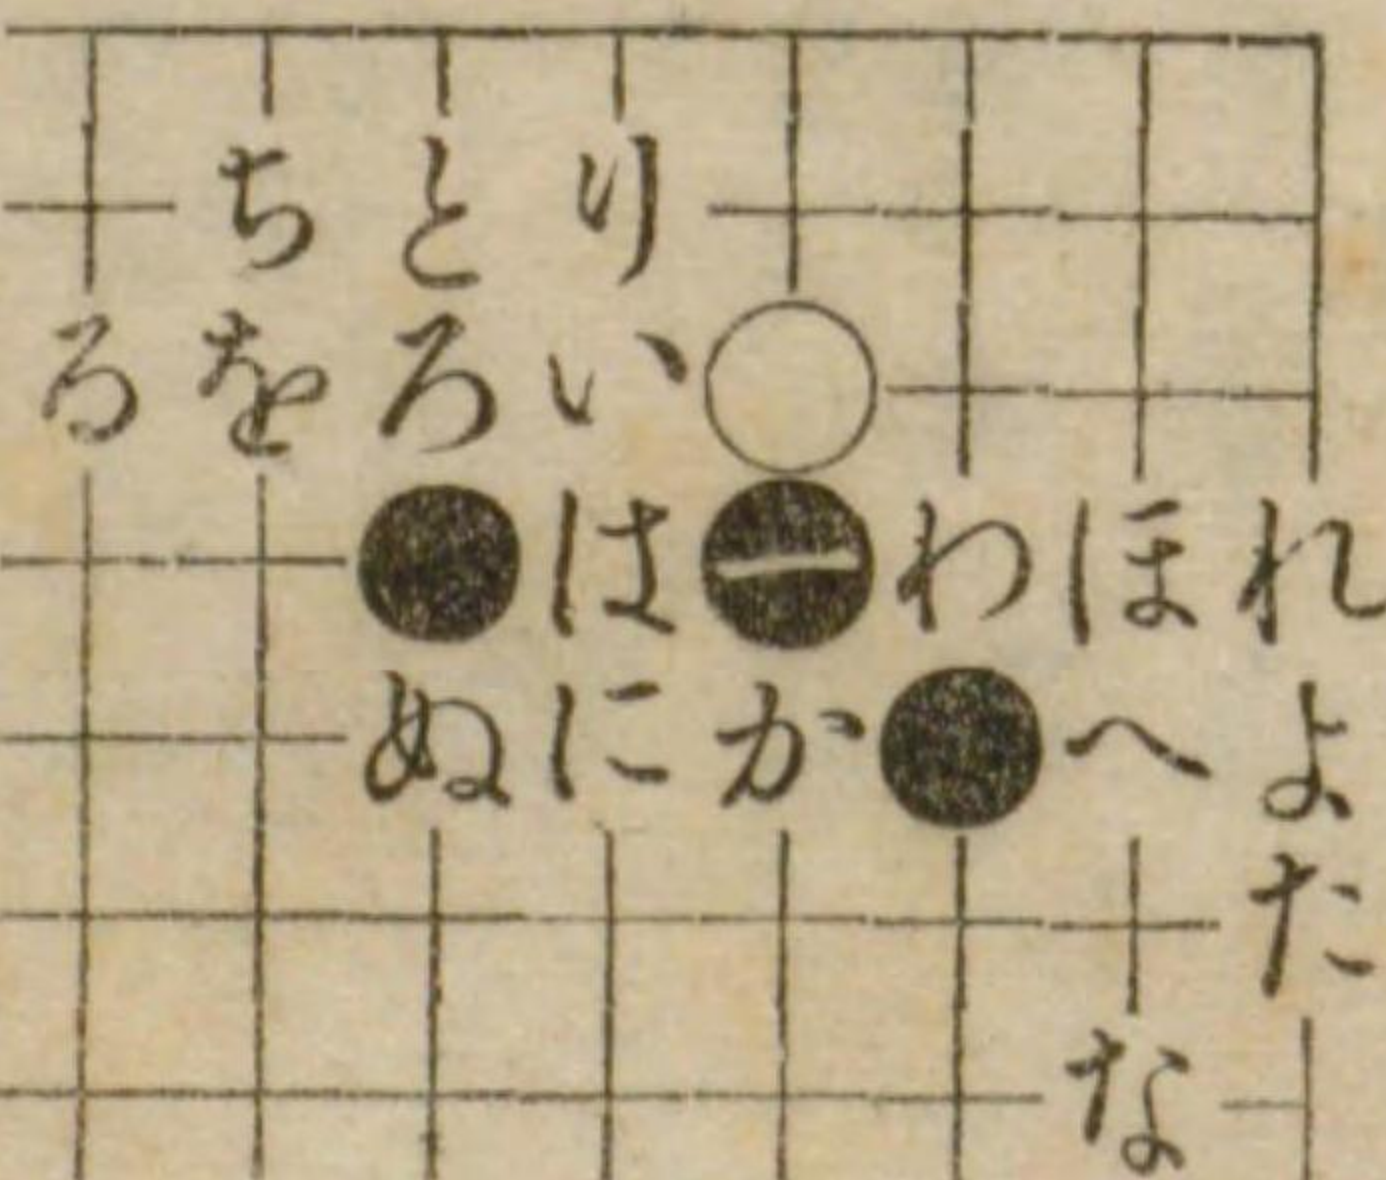 ちとり
るをろい
は一わほれ
ぬにかへよ
た
な